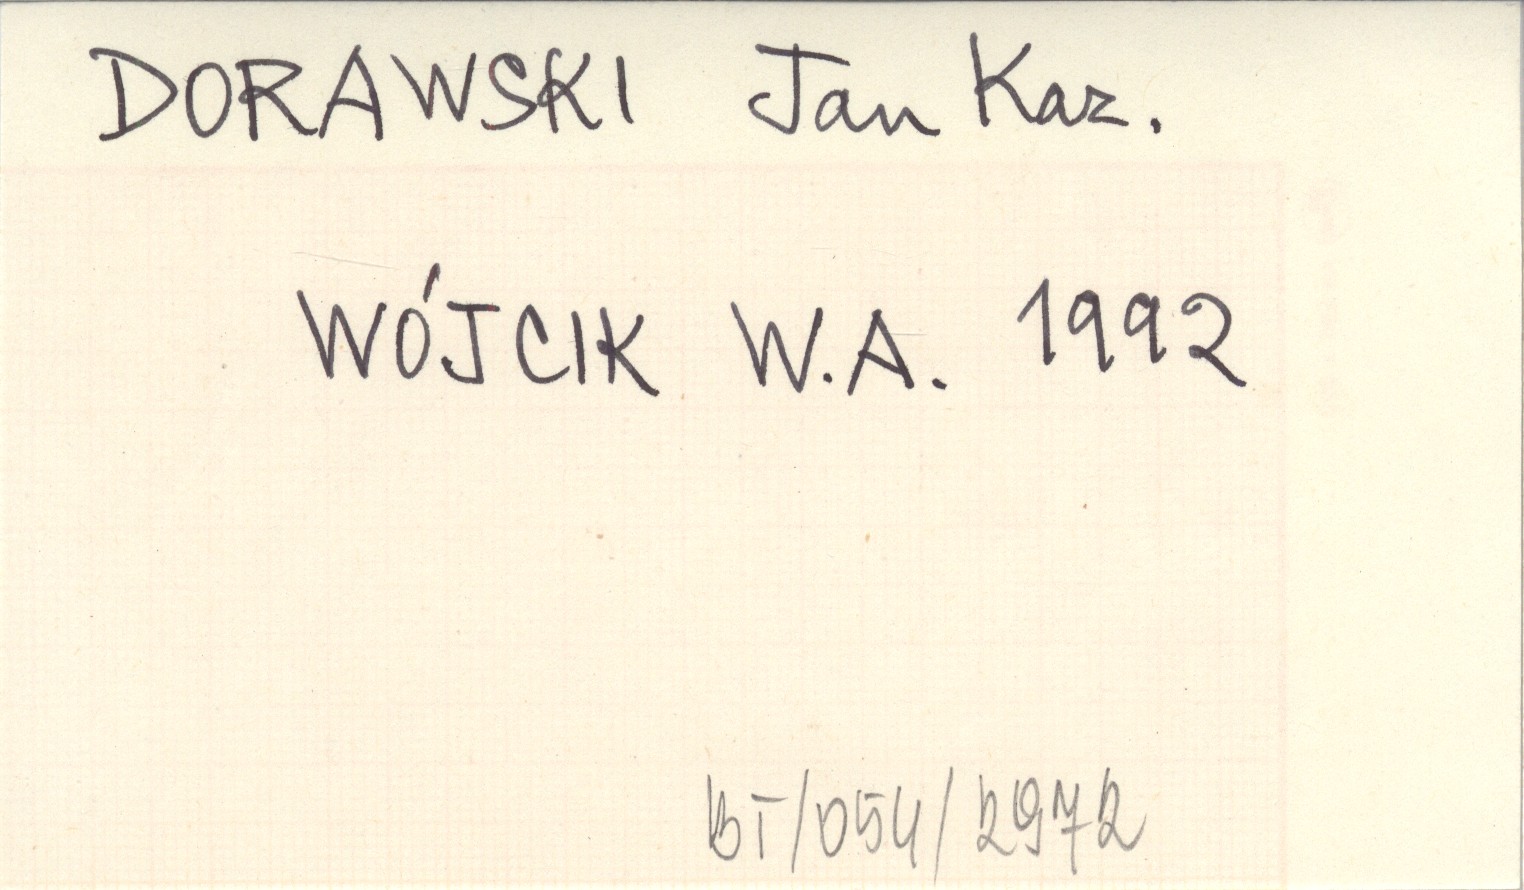 DORAWSKI Jan Kaz.
WÓJCIK W.A. 1992
BT/054/2972